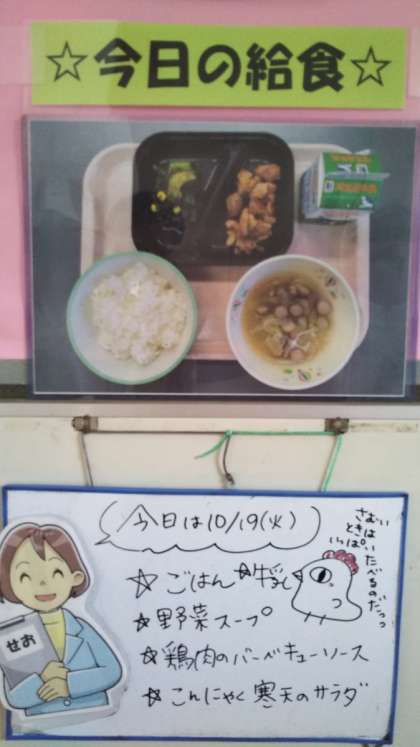 ☆今日の給食☆
今日は10/19(火)
さむい
ときは
いっぱい
たべるのだっっ
☆ごはん ☆牛乳
☆野菜スープ
☆鶏肉のバーベキューソース
☆こんにゃく寒天のサラダ
せお